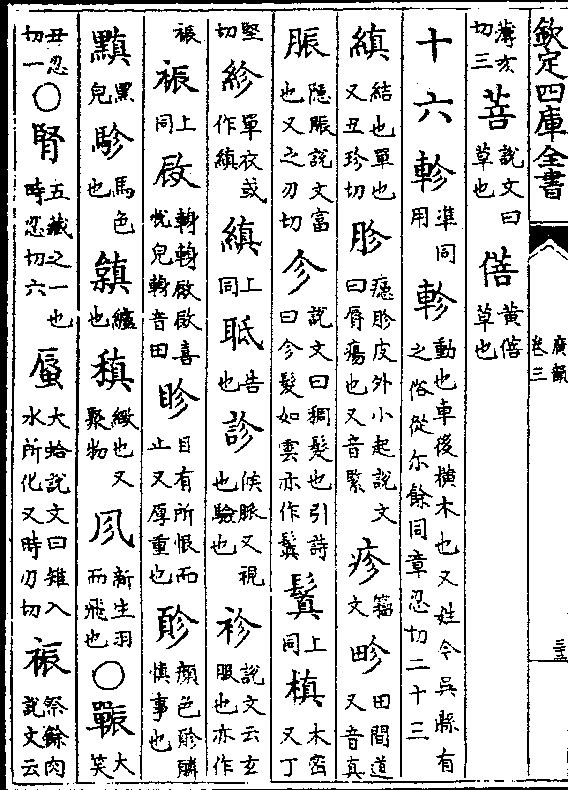 欽定四庫全書
廣韻
卷三
薄亥切三 菩 說文曰草也 㒀 黃㒀草也
十六軫 準同用 軫 動也車後橫木也又姓今吳縣有之俗從尓餘同章忍切二十三
縝 結也單也又丑珍切 胗 癮胗皮外小起說文曰脣瘍也又音緊 疹 籀文 畛 田間道又音真
脤 隱脤說文富也又之刃切 㐱 說文曰稠髮也引詩曰㐱髮如雲亦作鬒 鬒 上同 槙 木密又丁堅切
紾 單衣或作縝 縝 上同 聄 告也 診 候脈又視也驗也 袗 說文云玄服也亦作裖
裖 上同 㱽 轃轃㱽㱽喜悅皃轃音田 眕 目有所恨而止又厚重也 䪾 顏色䪾䫰慎事也
黰 黑皃 駗 馬色也 䌶 纑也 稹 緻也又聚物 㐱 新生羽而飛也 ○ 辴 大笑丑忍切一
○ 腎 五藏之一也時忍切六 蜃 大蛤說文曰雉入水所化又時刃切 祳 祭餘肉說文云